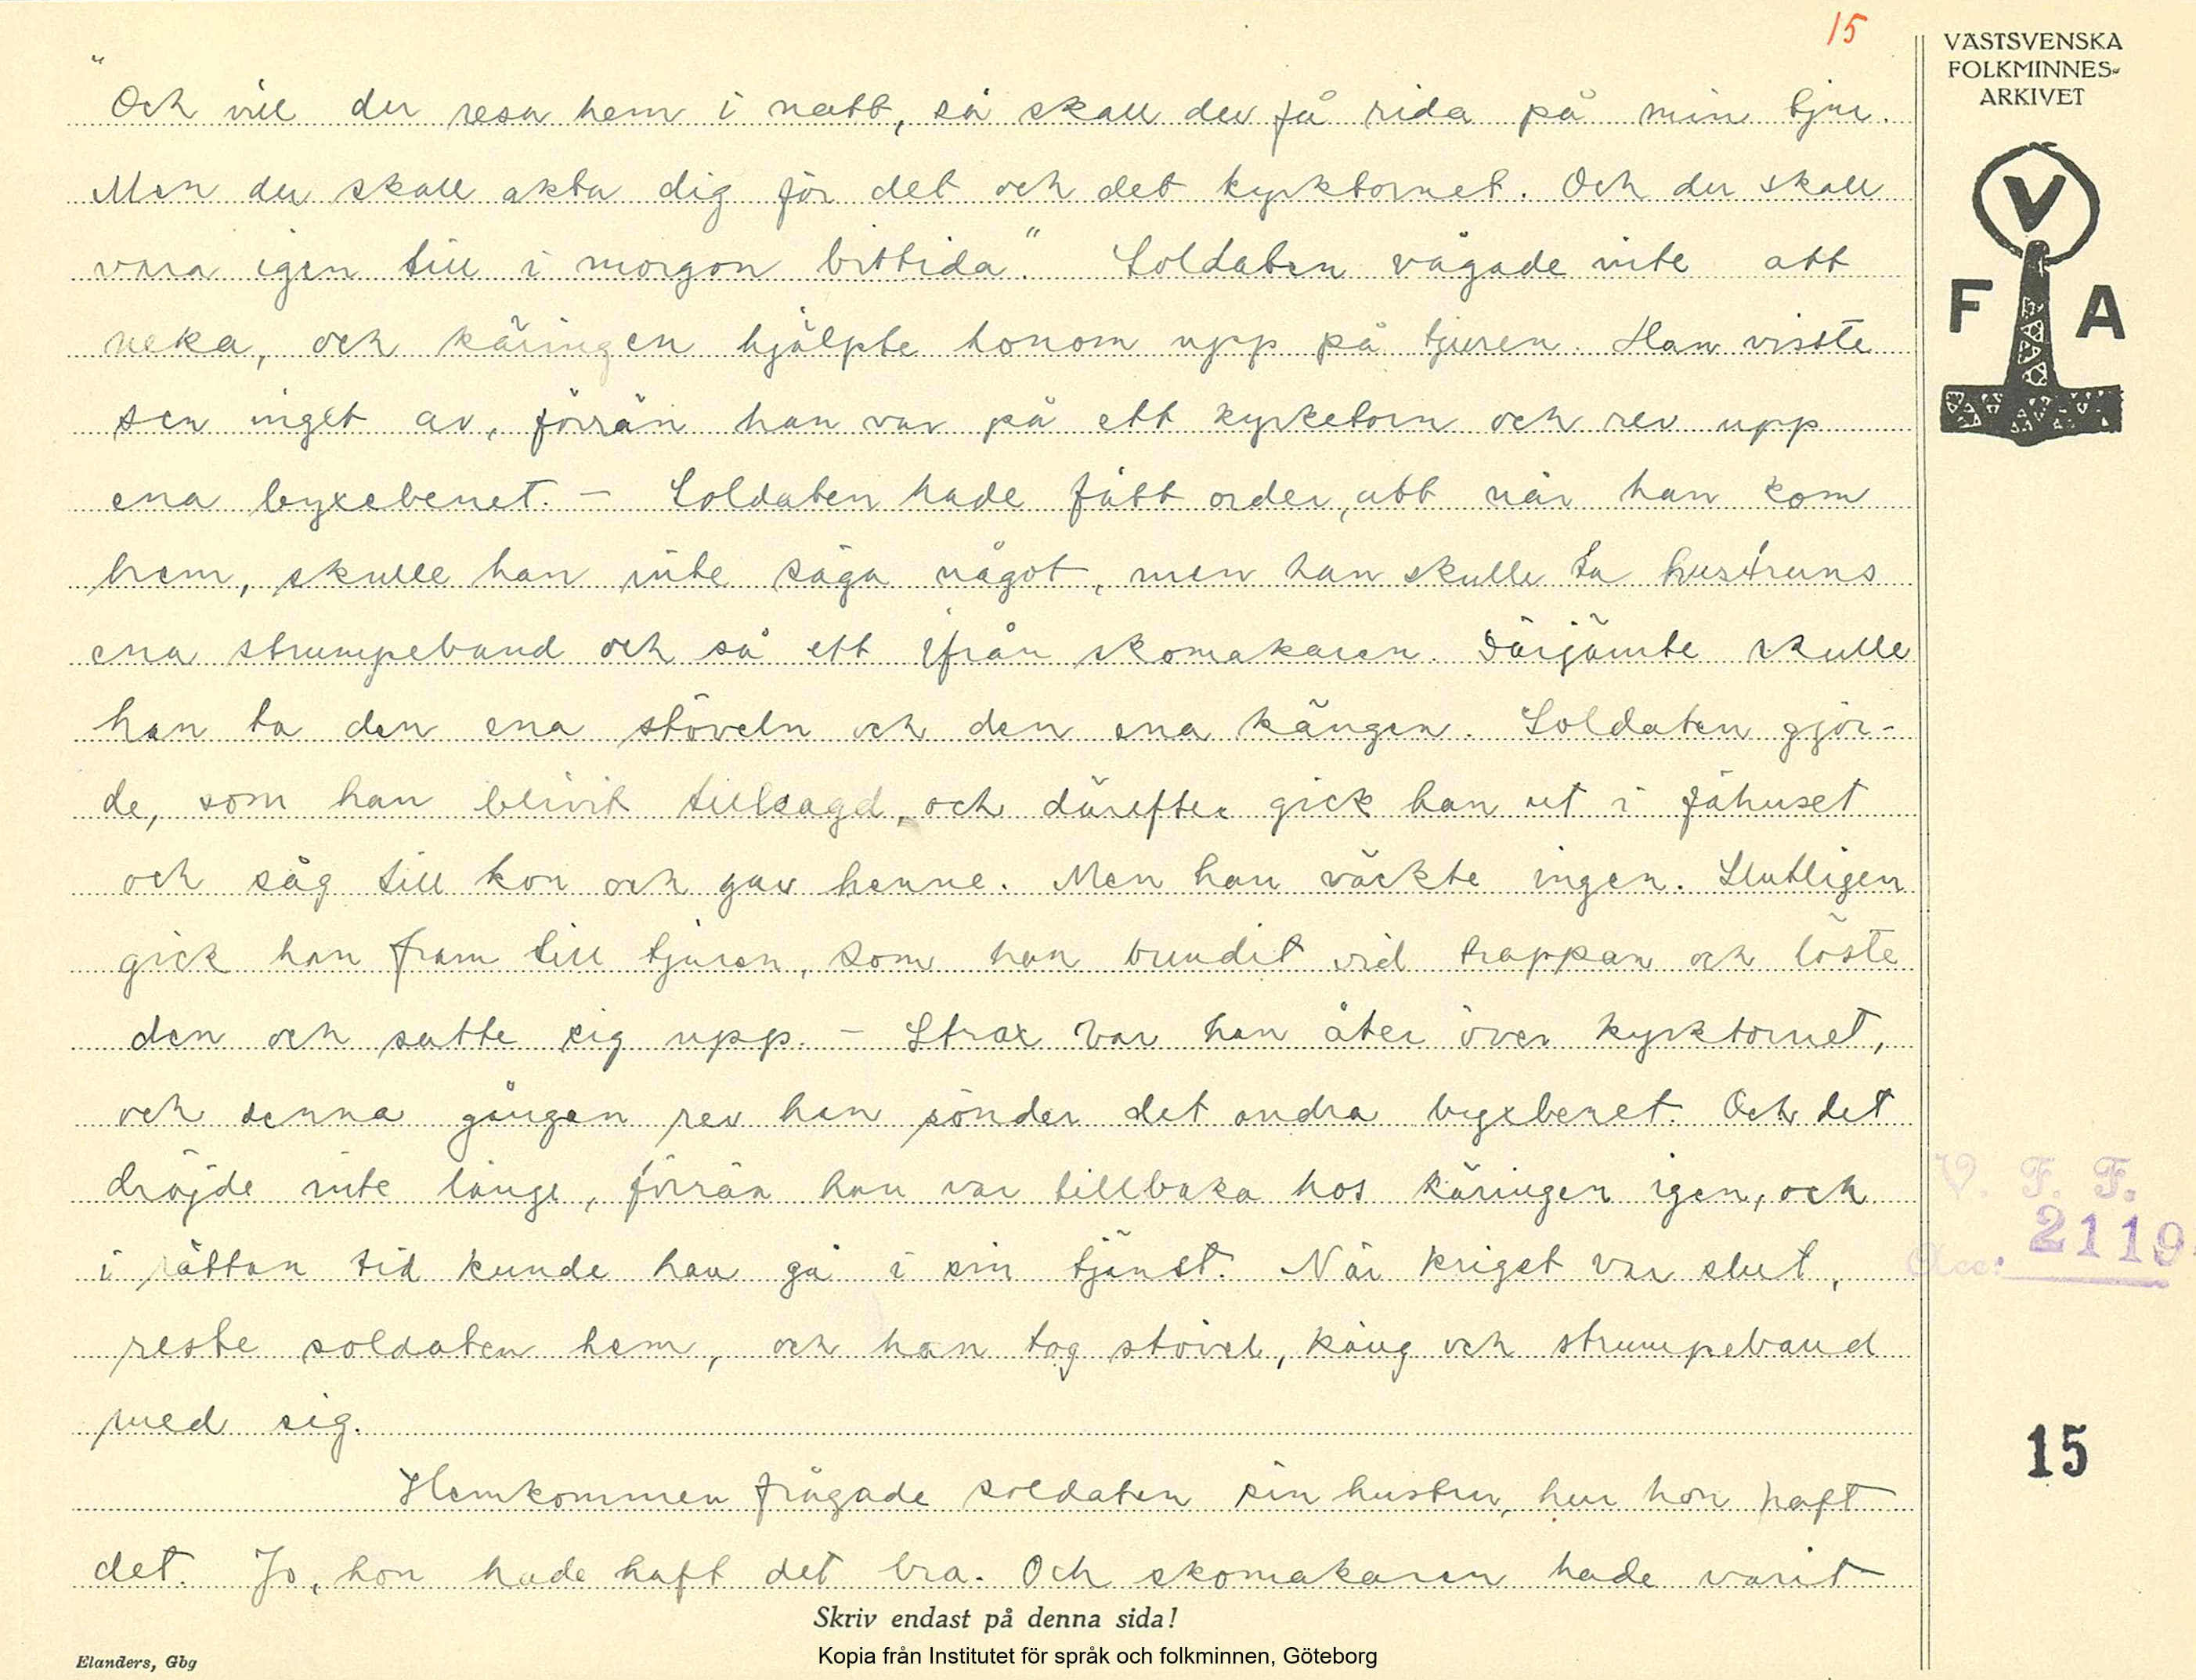 15
VÄSTSVENSKA
FOLKMINNES-
ARKIVET
V
F A
"Och vill du resa hem i natt, så skall du få rida på min tjur.
Men du skall akta dig för det och det kyrktornet. Och du skall
vara igen till i morgon bittida." Soldaten vågade inte att
neka, och käringen hjälpte honom upp på tjuren. Han visste
sen inget av, förrän han var på ett kyrketorn och rev upp
ena byxebenet. – Soldaten hade fått order, att när han kom
hem, skulle han inte säga något, men han skulle ta hustruns
ena strumpeband och så ett ifrån skomakaren. Därjämte skulle
han ta den ena stöveln och den ena kängen. Soldaten gjor-
de, som han blivit tillsagd, och därefter gick han ut i fähuset
och såg till kon och gav henne. Men han väckte ingen. Slutligen
gick han fram till tjuren, som han bundit vid trappan och löste
den och satte sig upp. – Strax var han åter över kyrktornet,
och denna gången rev han sönder det andra byxbenet. Och det
dröjde inte länge, förrän han var tillbaka hos käringen igen, och
i rättan tid kunde han gå i sin tjänst. När kriget var slut,
reste soldaten hem, och han tog stövel, käng och strumpeband
med sig.
Hemkommen frågade soldaten sin hustru, hur hon haft
det. Jo, hon hade haft det bra. Och skomakaren hade varit
V. F. F.
Acc. 2119
15
Skriv endast på denna sida!
Kopia från Institutet för språk och folkminnen, Göteborg
Elanders, Gbg